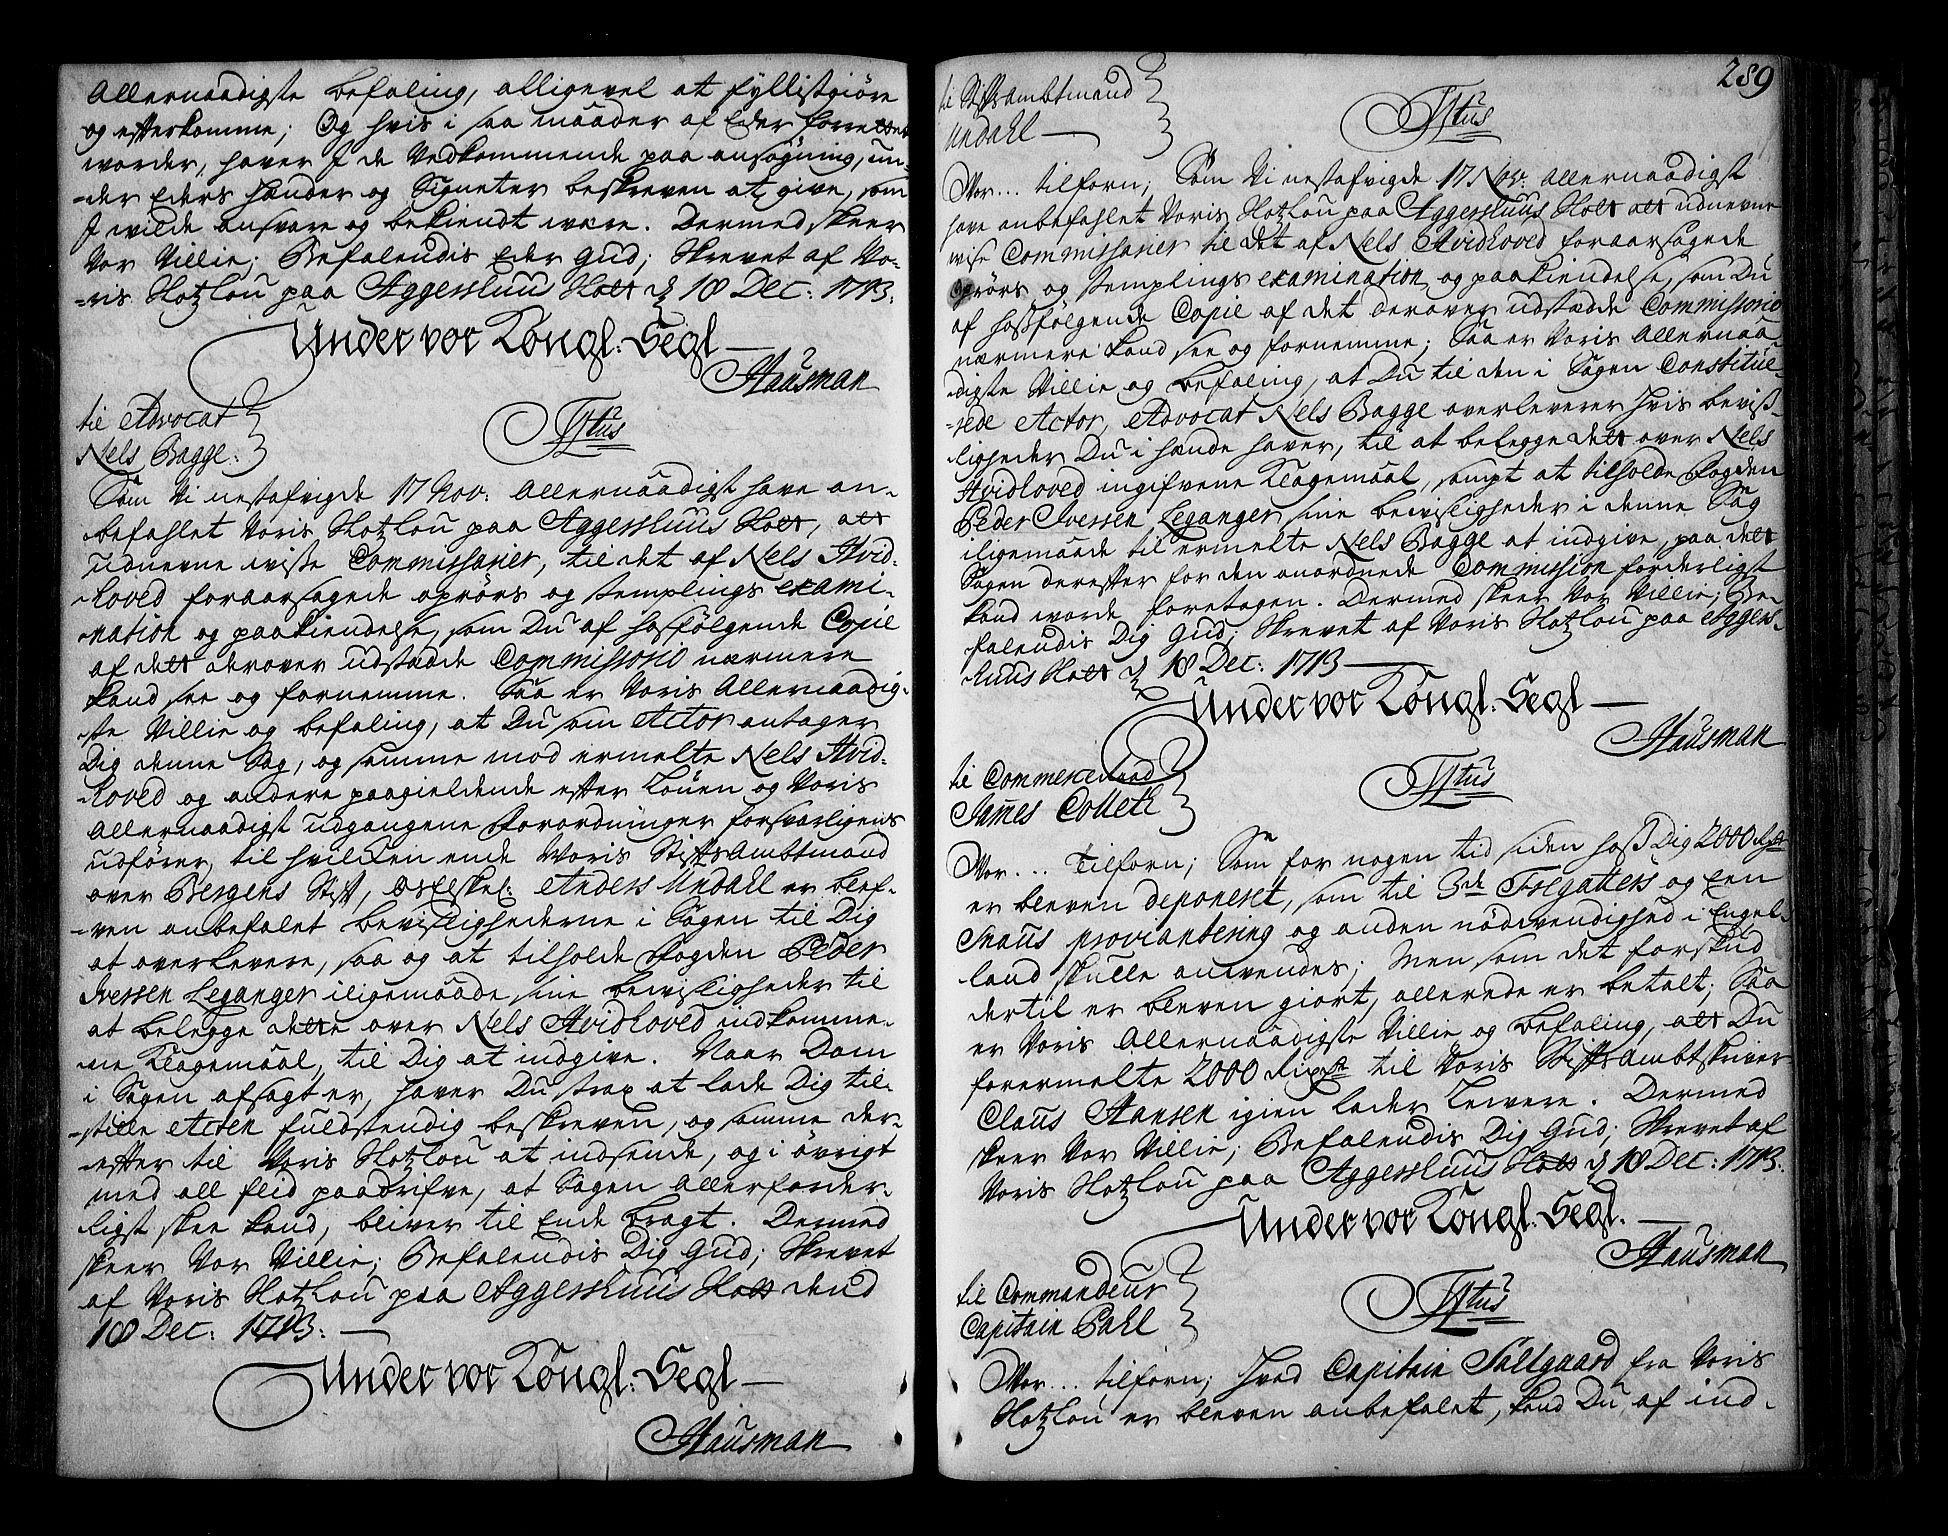 Allernaadigste befaling, alligevel at fyllistgiøre
og efterkomme; Og hvis i saa maader af Eder forrettet
worder, haver I de Vedkommende paa ansøgning, un-
-der Eders Hænder og Signeter beskreven at give, som
I wilde ansvare og bekiendt wære. Dermed skeer
Vor Villie; Befalendis Eder Gud; Skrevet af Vo-
-ris Slotzlou paa Aggershuus Slott d 18 Dec: 1713.
Under vor Kongl: Segl
Hausman
til Advocat
Nels Bagge:
Ttus
Som Vi nestafvigde 17 Nov: Allernaadigst have an-
befahlet Voris Slotzlou paa Aggershuus Slott, att
udnevne wisse Commissarier, til det af Nels Hvid-
-hoved foraarsagede oprörs og stemplings exami-
-nation og paakiendelse, som Du af hosfölgende Copie
af dett derover udstædde Commissorio nærmere
kand see og fornemme. Saa er Voris Allernaadig-
-ste Villie og befaling, at Du som Actor antager
Dig denne Sag, og samme mod ermelte Nels Hvid-
-hoved og andere paagieldende efter Louen og Voris
Allernaadigst udgangene Forordninger forsvarligens
udförer, til hvilcken ende Woris Stiftsambtmand
over Bergens Stift, Welb: Anders Undahl er blef-
-ven anbefalet bevisslighederne i Sagen til Dig
at overlevere, saa og at tilholde Fogden Peder
Iverssen Leganger iligemaade sine bevissligheder til
at belegge dette over Nels Hvidhoved indkomme-
-ne Klagemaal, til Dig at indgive. Naar Dom
i Sagen afsagt er, haver Du strax at lade Dig til-
-stille Acten fuldstendig beskreven, og samme der-
-efter til Voris Slotzlou at indsende, og i övrigt
med all flid paadrifve, at Sagen allerforder-
-ligst skee kand, bliver til Ende bragt. Dermed
skeer Vor Villie; Befalendis Dig Gud; Skrevet
af Voris Slotzlou paa Aggershuus Slott dend
18 Dec: 1713:
Under vor Kongl: Segl
Hausman
289
til Stiftsambtmand
Undahl
Ttus
Vor... tilforn; Som Vi nestafvigde 17 Nov: Allernaadigst
have anbefahlet Voris Slotzlou paa Aggershuus Slott att udnevne
wisse Commissarier til det af Nels Hvidhoved foraarsagede
oprörs og stemplings examination og paakiendelse, som Du
af hosfölgende Copie af det derover udstædde Commissorio
nærmere kand see og fornemme; Saa er Voris Allernaa-
-digste Villie og befaling, at Du til den i Sagen Constitue-
-rede Actor, Advocat Nels Bagge overleverer hvis beviss-
-ligheder Du i hænde haver, til at belegge dett over Nels
Hvidhoved ingifvene Klagemaal, sampt at tilholde Fogden
Peder Iverssen Leganger sine bevissligheder i denne Sag
iligemaade til ermelte Nels Bagge at indgive, paa dett
Sagen derefter for den anordnede Commission forderligst
kand worde foretagen. Dermed skeer Vor Villie; Be-
falendis Dig Gud; Skrevet af Voris Slotzlou paa Aggers-
-huus Slott d 18 Dec: 1713
Under vor Kongl: Segl
Hausman
til Commerceraad
James Colleth
Ttus
Vor... tilforn; Som for nogen tid siden hoss Dig 2000 Rixdr
er bleven deponeret, som til 3de Fregatters og een
Snaus proviantering og anden nödvendighed i Engel-
land skulle anvendes; Men som det forskud
dertil er bleven giort, allerede er betalt; Saa
er Voris Allernaadigste Villie og befaling, att Du
forermelte 2000 Rixdr til Voris Stiftsambtskriver
Claus Hansen igien lader levere. Dermed
skeer Vor Villie; Befalendis Dig Gud; Skrevet af
Voris Slotzlou paa Aggershuus Slott d 18 Dec: 1713.
Under vor Kongl: Segl.
Hausman
til Commandeur
Capitain Pahl
Ttus
Vor... tilforn; Hvad Capitain Paltgaard fra Voris
Slotzlou er bleven anbefalet, kand Du af ind-